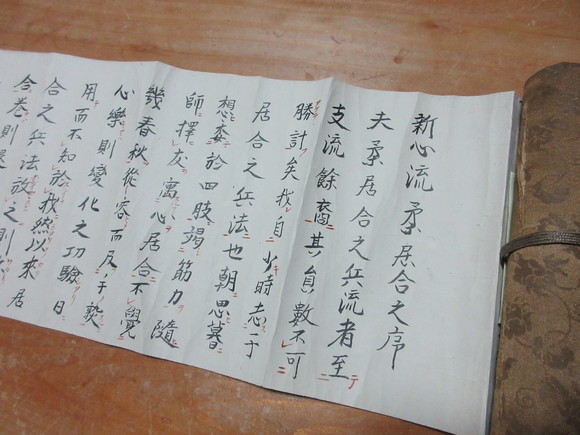 新心流柔居合之序
夫柔居合之兵流者至
支流餘裔其員數不可
勝計矣我自少時志于
居合之兵法也朝思暮
想委於四肢竭筋力隨
師擇友寓心居合不覺
幾春秋從容而反于藝
心樂則變化之功驗日
用而不知於我然以來居
合之兵法放之則
合卷則